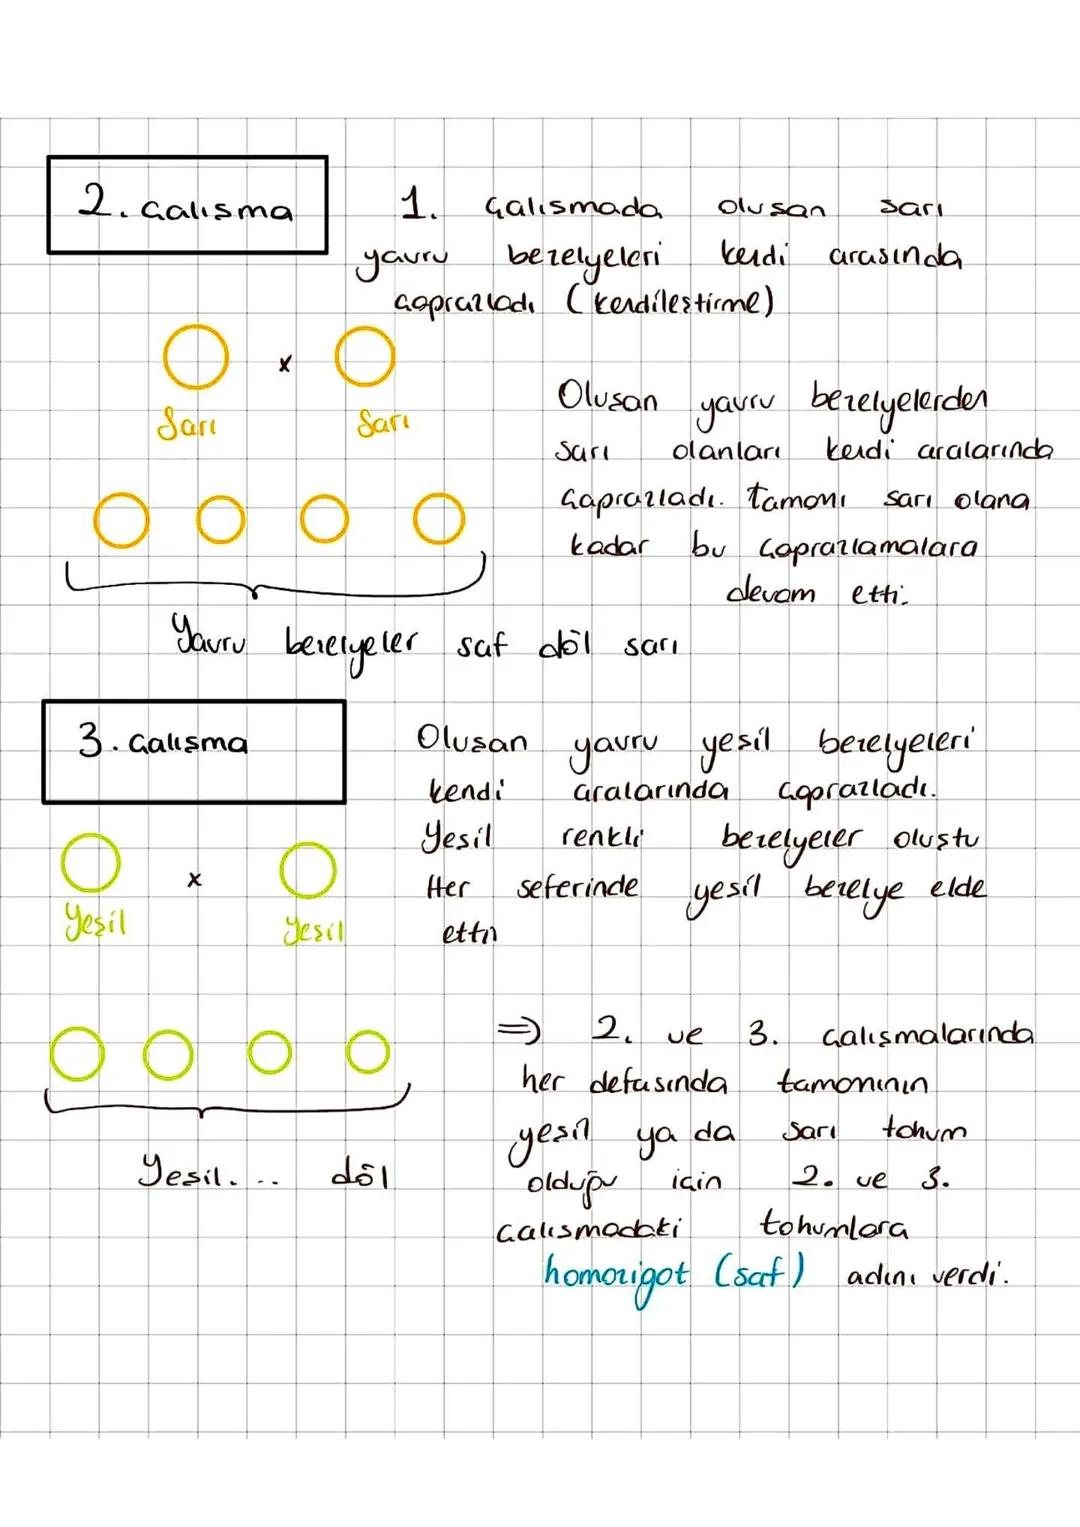 2. Çalısma
1. Çalısmada olusan sarı
yavru bezelyeleri kendi arasında
çaprazladı (kendileştirme)
x
Sarı Sarı
Olusan yavru bezelyelerden
sarı olanları kendi aralarında
çaprazladı. tamamı sarı olana
kadar bu çaprazlamalara
devam etti.
Yavru bezelyeler saf döl sarı
3. Çalışma
Olusan yavru yesil bezelyeleri
kendi aralarında çaprazladı.
Yesil renkli bezelyeler oluştu
Her seferinde yesil bezelye elde
etti
x
Yeşil Yesil
=) 2. ve 3. çalışmalarında
her defasında tamamının
yesil ya da sarı tohum
olduğu için 2. ve 3.
çalısmadaki tohumlara
homozigot (saf) adını verdi.
Yesil... döl